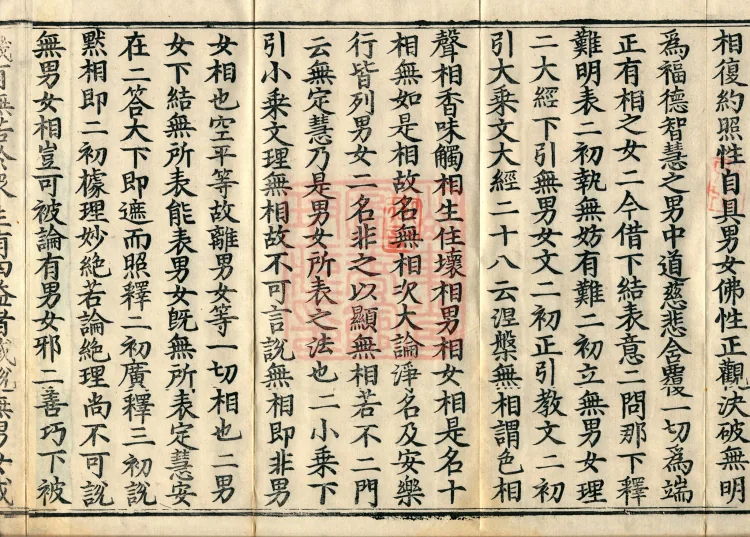 相復約照性自具男女佛性正觀決破無明
為福德智慧之男中道慈悲含覆一切為端
正有相之女二今借下結表意二問那下釋
難明表二初執無妨有難二初立無男女理
二大經下引無男女文二初正引教文二初
引大乘文大經二十八云涅槃無相謂色相
聲相香味觸相生住壞相男相女相是名十
相無如是相故名無相次大論淨名及安樂
行皆列男女二名非之以顯無相若不二門
云無定慧乃是男女所表之法也二小乘下
引小乘文理無相故不可言說無相即非男
女相也空平等故離男女等一切相也二男
女下結無所表能表男女既無所表定慧安
在二答大下即遮而照釋二初廣釋三初說
默相即二初據理妙絕若論絕理尚不可說
無男女相豈可被論有男女邪二善巧下被